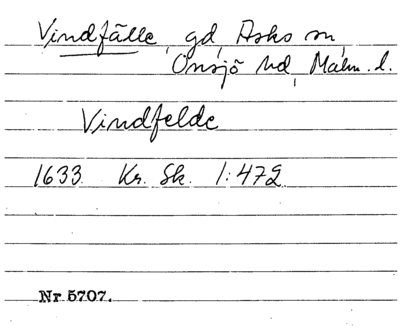 Vindfälle, gd, Asks sn,
Onsjö hd, Malm. l.
Vindfelde
1633 Kr. Sk. 1:472
Nr 5707.